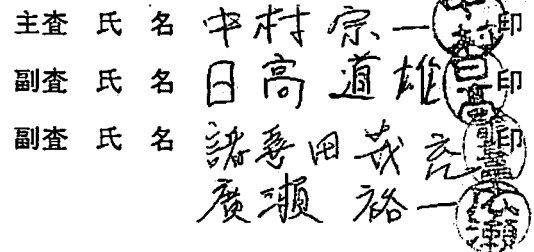 主査 氏 名 中村 宗一 印
副査 氏 名 日高 道雄 印
副査 氏 名 諸喜田 茂充 印
廣瀬 裕一